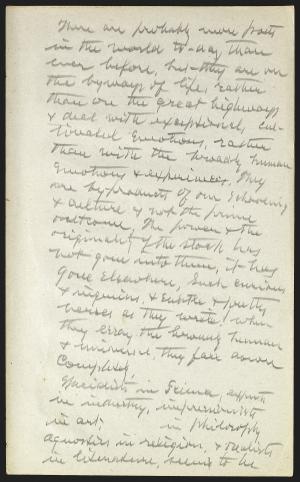 There are probably more poets
in the world to-day than
ever before, but they are on
the byways of life, rather
than on the great highways
& deal with exceptional, cul-
tivated emotions, rather
than with the broadly human
emotions & experiences. They
are by-products of our schooling
& culture & not the prime
outcome. The power & the
originality of the stock has
not gone into them, it has
gone elsewhere. Such curious
& & subtle & pretty
verses as they write, when
they essay the broadly human
& universal, they fall down
completely.
Specialists in Science, experts
in industry, impressionists
in art, in philosophy
agnostics in religion, & realists
in literature, seems to be